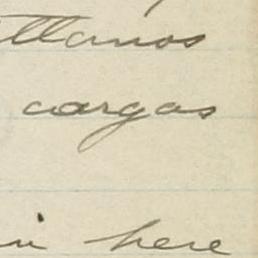 llanos
cargas
in here